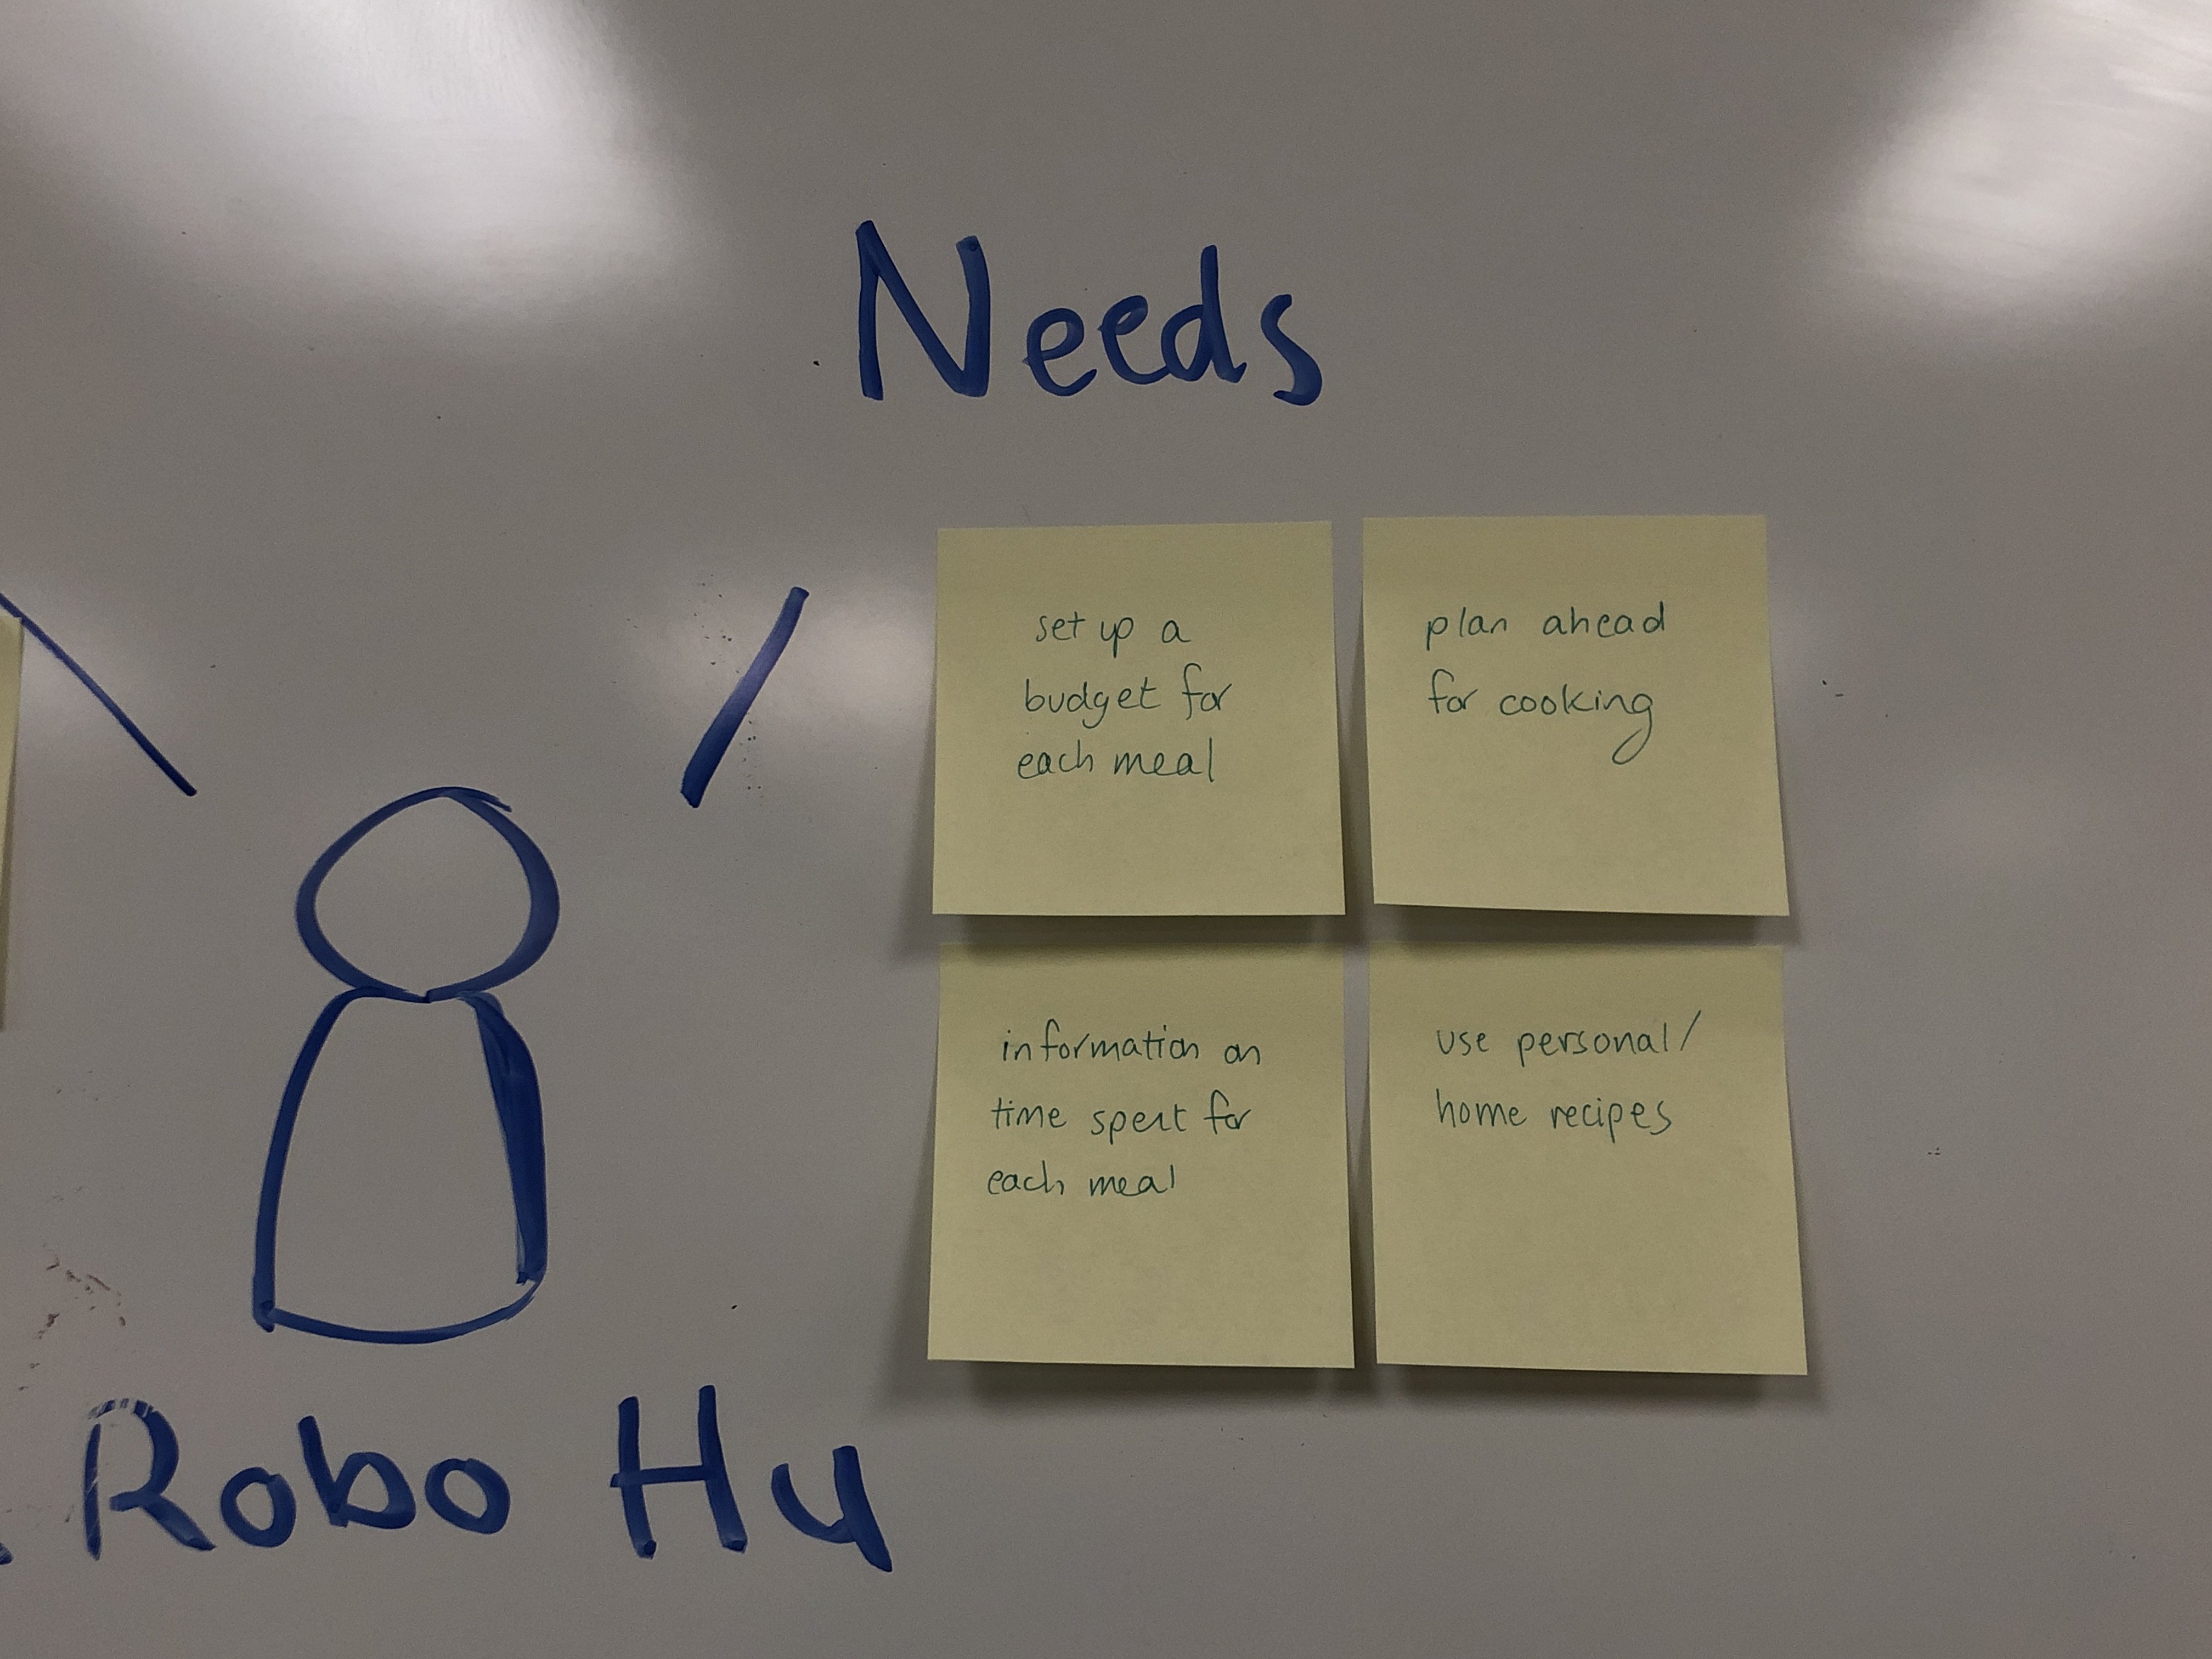 Needs
set up a
budget for
each meal
plan ahead
for cooking
information on
time spent for
each meal
use personal/
home recipes
Robo Hu